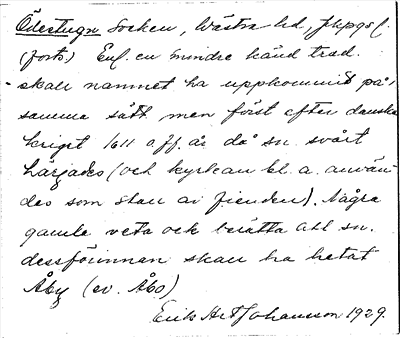 Ödestugu Socken, Västra hd, Jkpgs l.
(forts.) Enl. en mindre känd trad.
skall namnet ha uppkommit på
samma sätt men först efter danska
kriget 1611 o. ff. år då sn. svårt
härjades (och kyrkan bl. a. använ-
des som stall av fienden). Några
gamla veta och berätta att sn.
dessförinnan skall ha hetat
Åby (ev. Åbo)
Erik Johansson 1929.